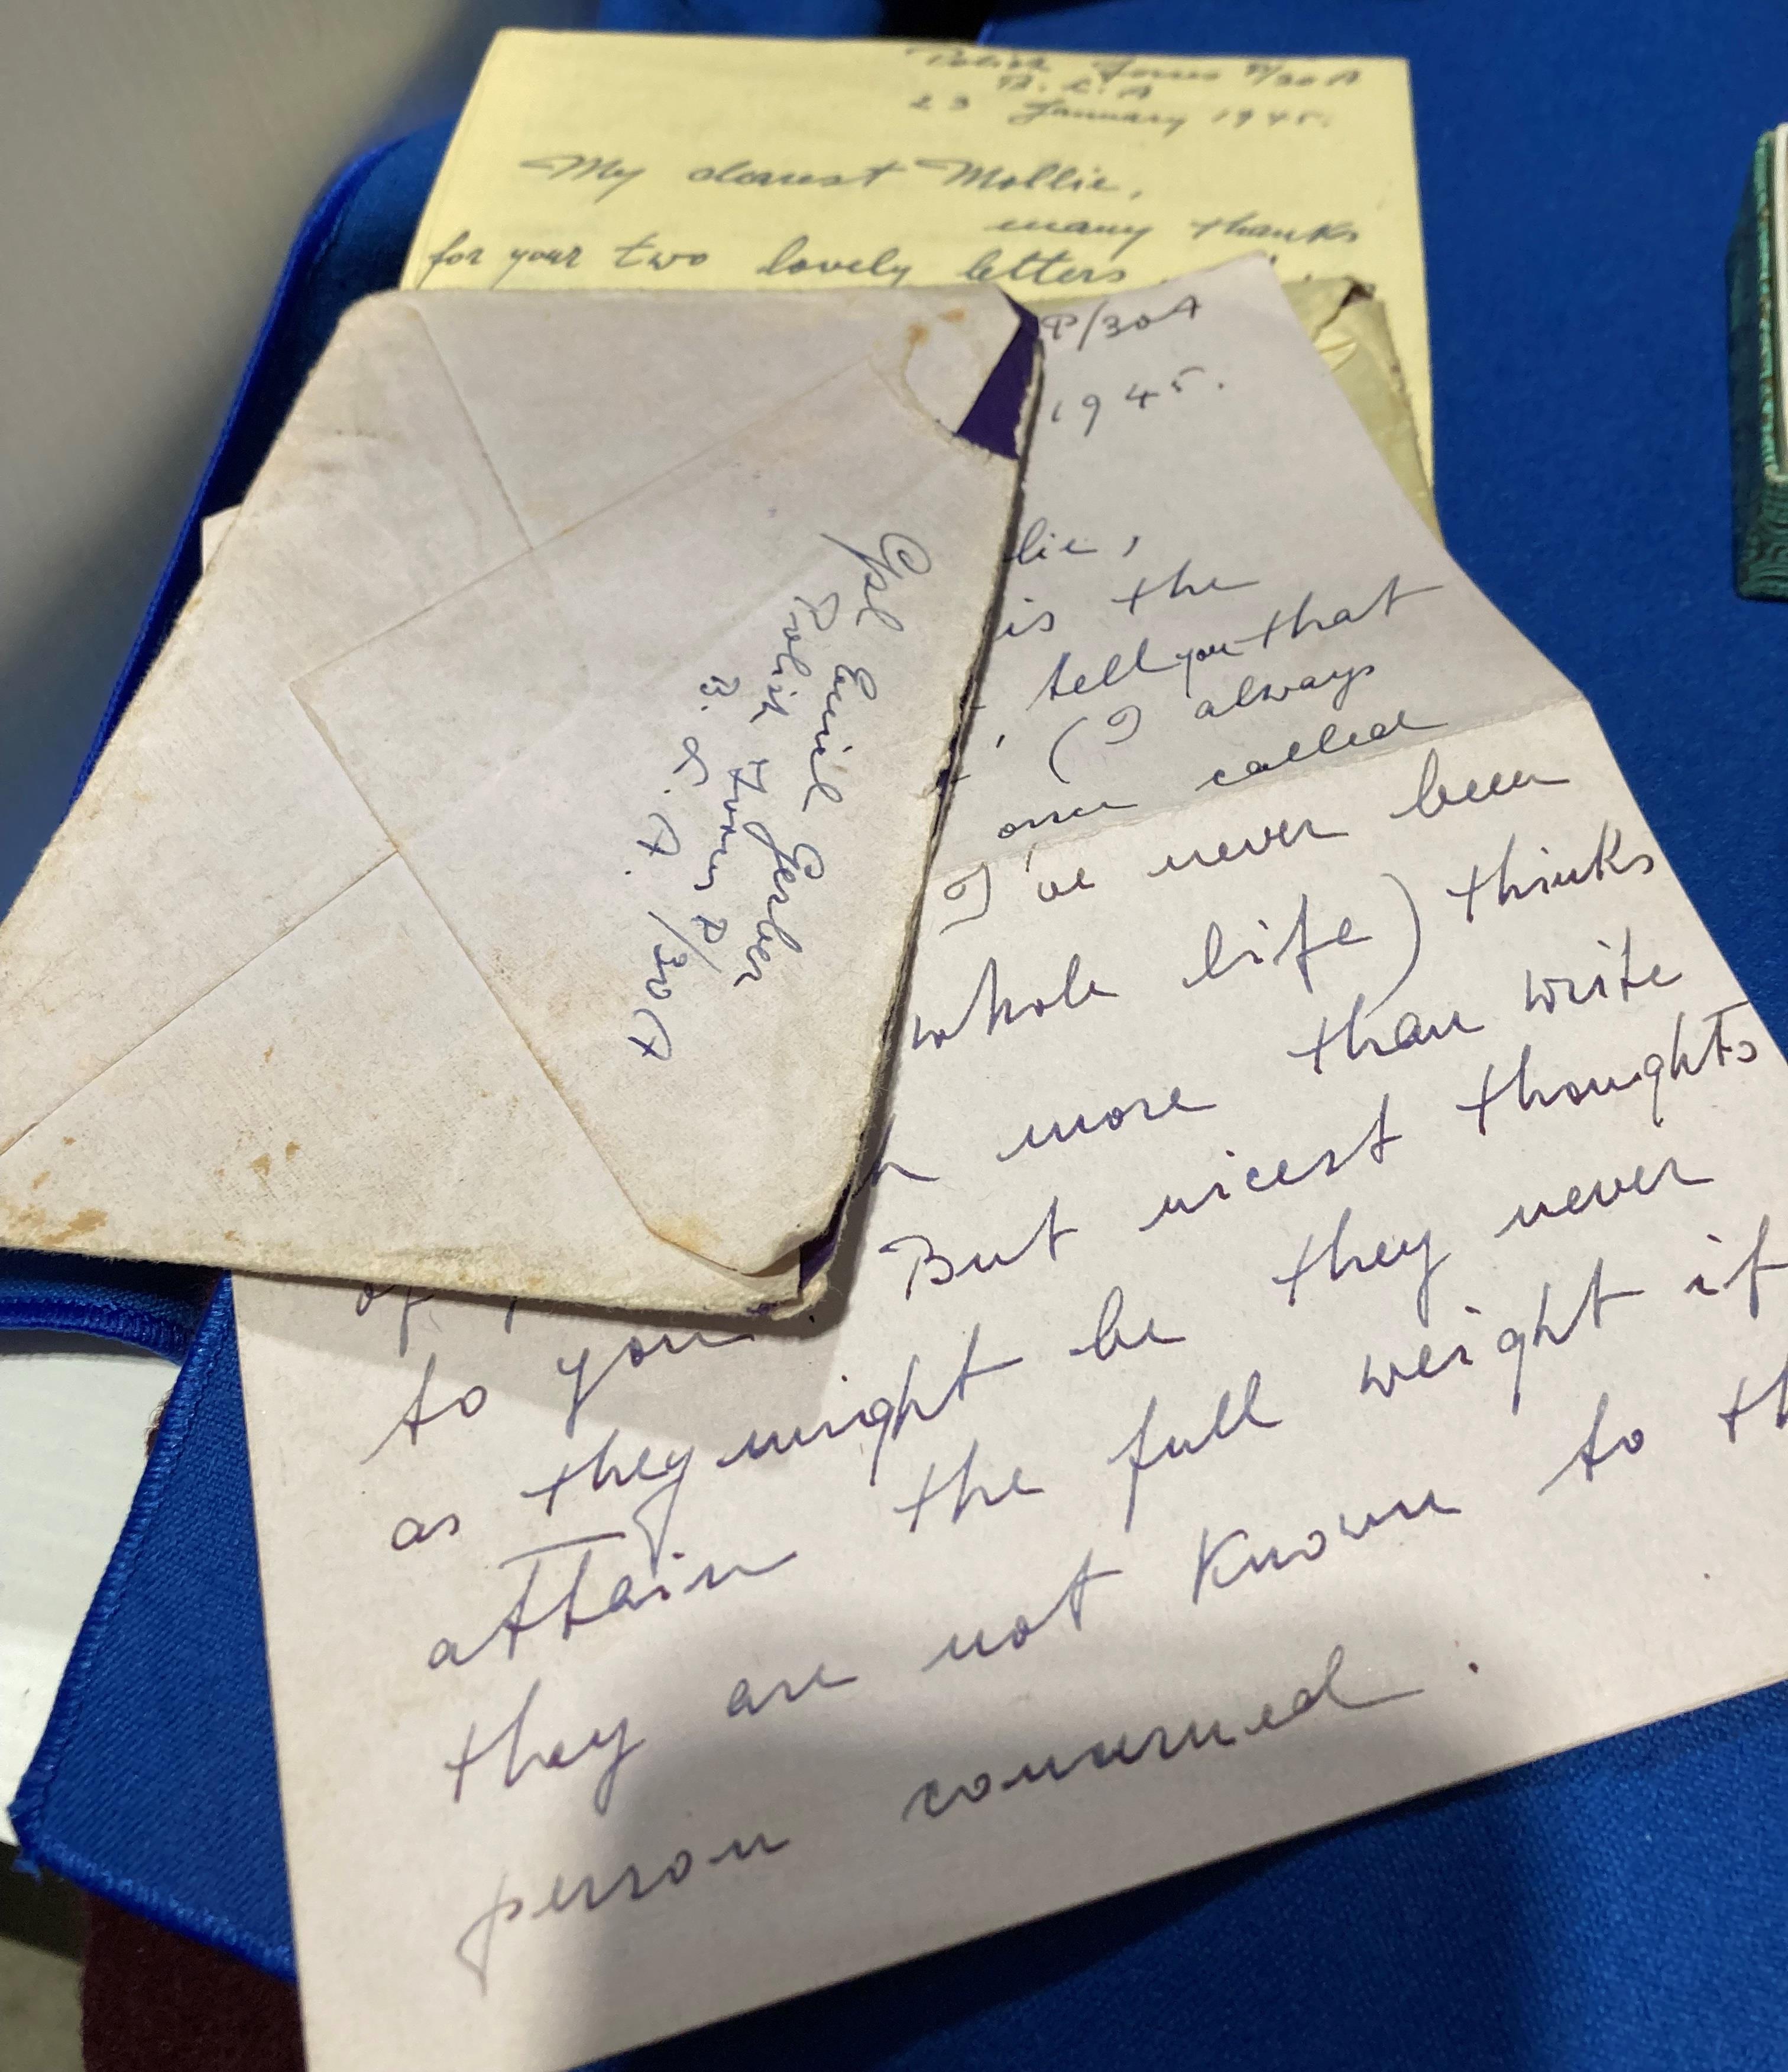 Polish Forces P/30A
B. L. A
23 January 1945.
My dearest Mollie,
many thanks
for your two lovely letters
Cpl Emil Gerber
Polish Forces P/30A
B. L. A.
P/30A
1945.
lie,
is the
, tell you that
(I always
called
I've never been
whole life) thinks
more than write
to you. But nicest thoughts
as they might be they never
attain the full weight if
they are not known to th
person concerned.